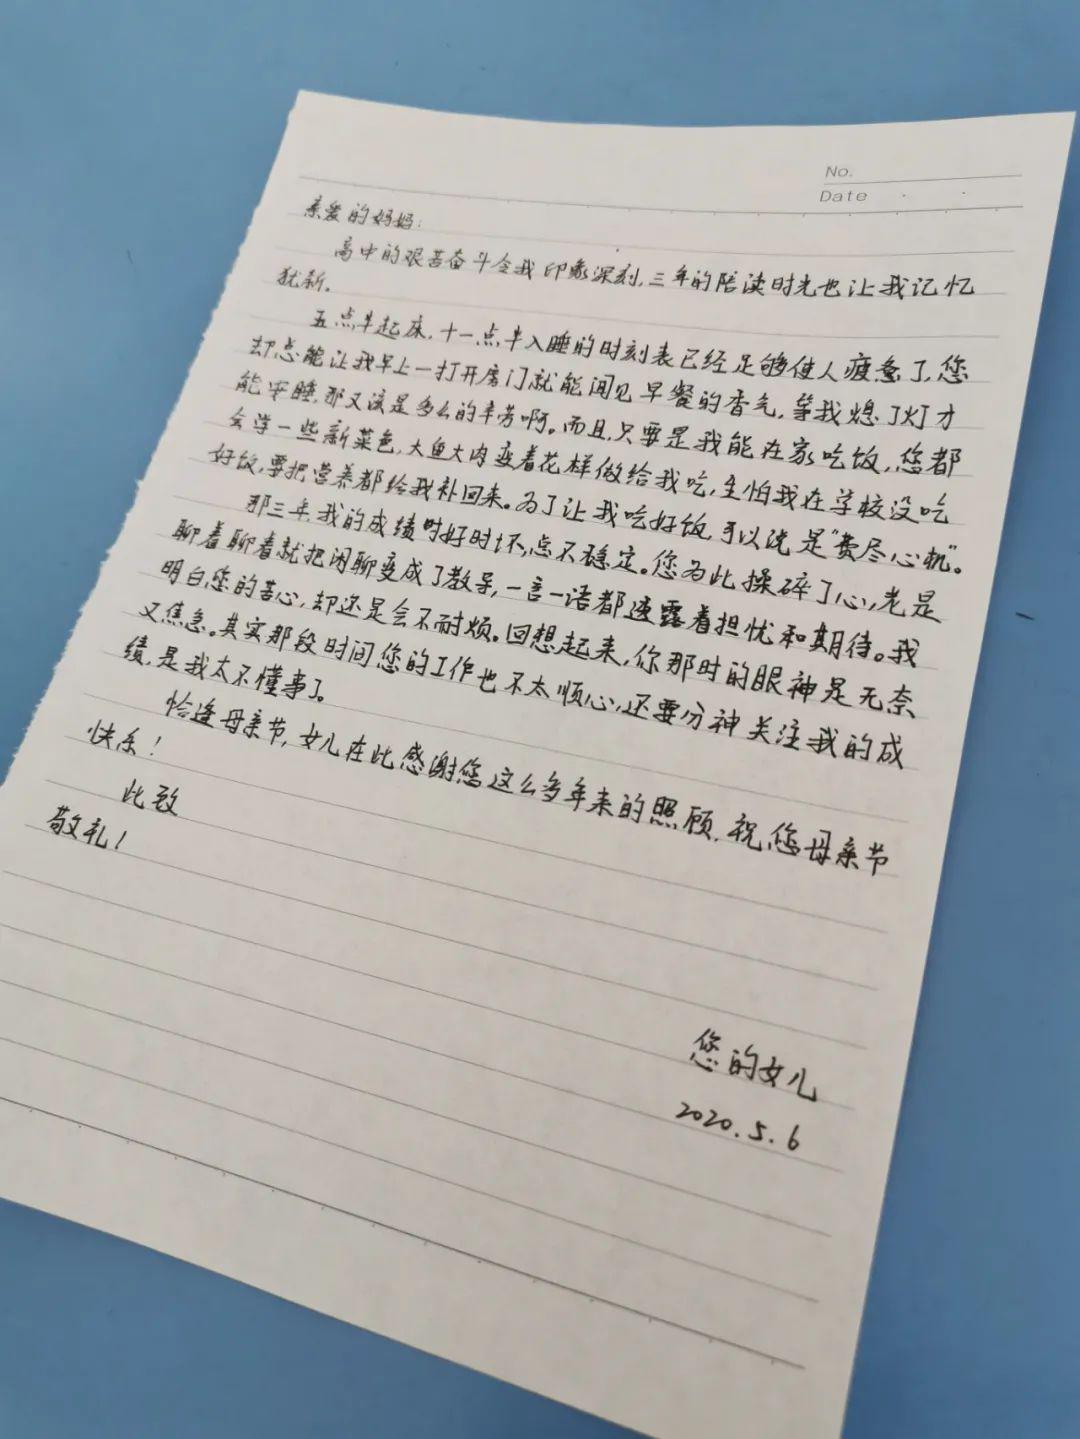 No.
Date
亲爱的妈妈:
高中的艰苦奋斗令我印象深刻,三年的陪读时光也让我记忆
犹新。
五点半起床,十一点半入睡的时刻表已经足够使人疲惫了,您
却总能让我早上一打开房门就能闻见早餐的香气,等我熄了灯才
能安睡,那又该是多么的辛劳啊。而且,只要是我能在家吃饭,您都
会学一些新菜色,大鱼大肉变着花样做给我吃,生怕我在学校没吃
好饭,要把营养都给我补回来。为了让我吃好饭,可以说是"费尽心机"。
那三年,我的成绩时好时坏,总不稳定。您为此操碎了心,老是
聊着聊着就把闲聊变成了教导,一言一语都透露着担忧和期待。我
明白您的苦心,却还是会不耐烦。回想起来,你那时的眼神是无奈
又焦急。其实那段时间您的工作也不太顺心,还要分神关注我的成
绩,是我太不懂事了。
恰逢母亲节,女儿在此感谢您这么多年来的照顾,祝您母亲节
快乐!
此致
敬礼!
您的女儿
2020.5.6